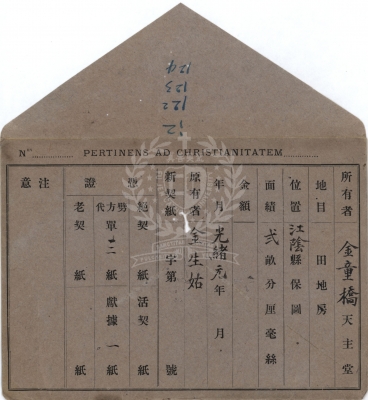 12
122
123
124
Nº PERTINENS AD CHRISTIANITATEM
所有者 金童橋 天主堂
地目 田地房
位置 江陰縣保圖
面積 弍畝分厘毫絲
金額
年月 光緒元年 月
原有者 金生姑
新契紙 字第 號
憑證
絕契 紙 活契 紙
代方單 二紙 獻據 一紙
老契 紙 紙
注意